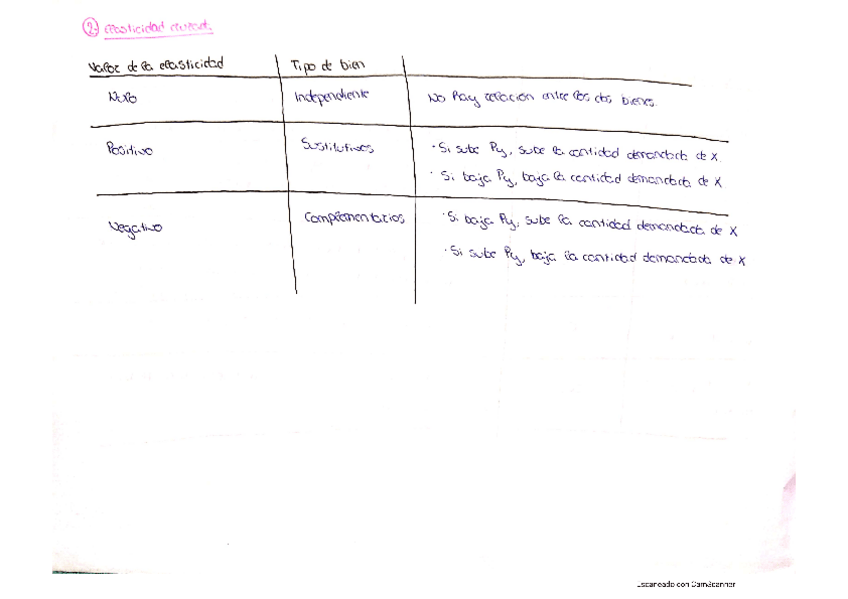 2. Elasticidad cruzada
Valor de la elasticidad Tipo de bien
Nulo Independiente No hay relación entre los dos bienes.
Positivo Sustitutivos · Si sube Py, sube la cantidad demandada de X.
· Si baja Py, baja la cantidad demandada de X
Negativo Complementarios · Si baja Py, sube la cantidad demandada de X
· Si sube Py, baja la cantidad demandada de X
Escaneado con CamScanner